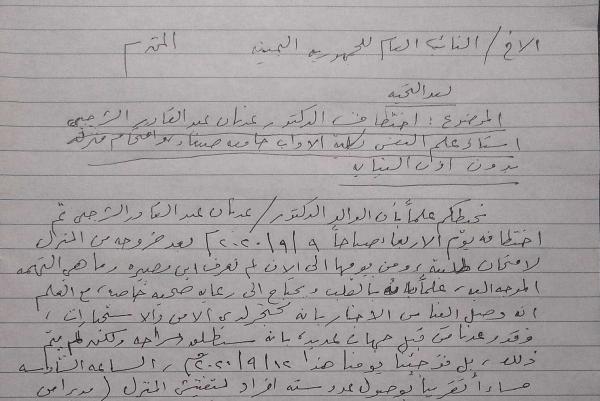 الاخ / النائب العام للجمهورية اليمنية المحترم
بعد التحية
الموضوع : اختطاف الدكتور عدنان عبدالقادر الشرجبي
استاذ علم النفس كلية الاداب جامعة صنعاء واقتحام منزله
بدون اذن النيابة
نحيطكم علماً بأن الوالد الدكتور / عدنان عبدالقادر الشرجبي تم
اختطافه يوم الاربعاء صباحاً ٩ / ٩ / ٢٠٢٠م بعد خروجه من المنزل
لامتحان طلبته ، ومن يومها الى الان لم نعرف اين مصيره وما هي التهمة
الموجهة اليه ، علماً بانه بالقلب ويحتاج الى رعاية صحية خاصة ، مع العلم
انه وصل الينا من الاخبار بانه محتجز لدى الامن والاستخبارات ،
وقد وعدنا من قبل جهات عديدة بانه سيطلق سراحه ولكن لم يتم
ذلك ، بل فوجئنا يومنا هذا ١٢ / ٩ / ٢٠٢٠م ، الساعة السادسة
مساءاً تقريباً بوصول عدد ستة افراد لتفتيش المنزل ( مدير امن